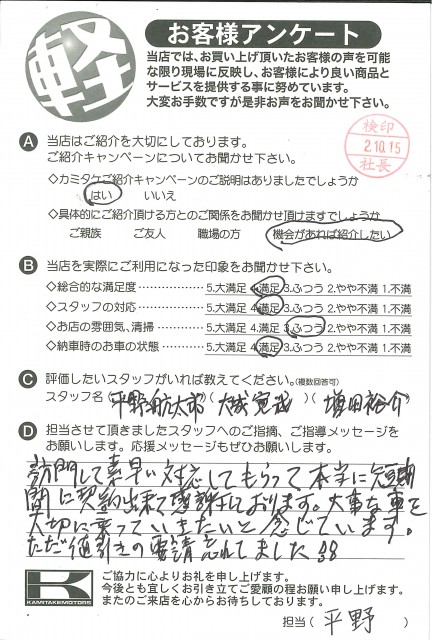 軽
お客様アンケート
当店では、お買い上げ頂いたお客様の声を可能
な限り現場に反映し、お客様により良い商品と
サービスを提供する事に努めています。
大変お手数ですが是非お声をお聞かせ下さい。
検印
2.10.15
社長
A 当店はご紹介を大切にしております。
ご紹介キャンペーンについてお聞かせ下さい。
◇カミタケご紹介キャンペーンのご説明はありましたでしょうか
はい いいえ
◇具体的にご紹介頂ける方とのご関係をお聞かせ頂けますでしょうか
ご親族 ご友人 職場の方 機会があれば紹介したい
B 当店を実際にご利用になった印象をお聞かせ下さい。
◇総合的な満足度 5.大満足 4.満足 3.ふつう 2.やや不満 1.不満
◇スタッフの対応 5.大満足 4.満足 3.ふつう 2.やや不満 1.不満
◇お店の雰囲気、清掃 5.大満足 4.満足 3.ふつう 2.やや不満 1.不満
◇納車時のお車の状態 5.大満足 4.満足 3.ふつう 2.やや不満 1.不満
C 評価したいスタッフがいれば教えてください。(複数回答可)
スタッフ名(平野航太郎)(大城寛哉)(増田裕介
D 担当させて頂きましたスタッフへのご指摘、ご指導メッセージを
お願いします。応援メッセージもぜひお願いします。
訪問して素早い対応してもらって本当に短期
間に契約出来て感謝しております。大事な車を
大切に乗っていきたいと感じています。
ただ値引きの要請忘れてました
K
KAMITAKEMOTORS
ご協力に心よりお礼を申し上げます。
今後とも宜しくお引き立てご愛顧の程お願い申し上げます。
またのご来店を心からお待ちしております。
担当(平野)